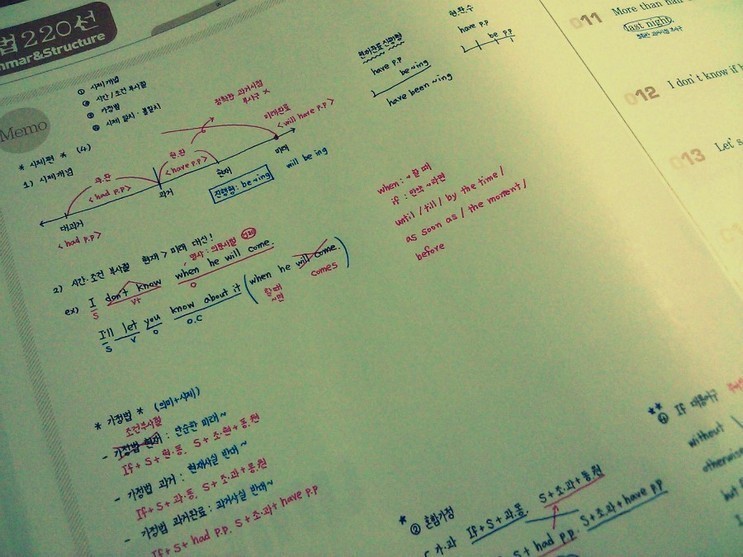 법 220선
mmar&Structure
Memo
① 시제개념
② 시간/조건 부사절
③ 가정법
④ 시제 일치·불일치
* 시제편 * (4)
1) 시제개념
과.완
<had p.p>
현.완
<have p.p>
미래완료
<will have p.p>
대과거
<had p.p>
과거
현재
진행형: be ~ing
미래
will be ing
have p.p
be ~ing
have been ~ing
현.완.수
have p.p
be pp
when: ~할 때
if : 만약 ~라면
until / till / by the time /
as soon as / the moment /
before
2) 시간·조건 부사절 현재 > 미래 대신!
ex) I don't know when he will come.
S Vt O
I'll let you know about it (when he will come.
S V O O.C
comes
* 가정법 * (의미+시제)
조건부사절
- 가정법 현재 : 단순한 미래~
If + S + 원.동, S + 조.원 + 동.원
- 가정법 과거 : 현재사실 반대~
If + S + 과.동, S + 조.과 + 동.원
- 가정법 과거완료 : 과거사실 반대~
If + S + had p.p, S + 조.과 + have p.p
* ② 혼합가정
If + S + 과.동, S + 조.과 + 동.원
had p.p. S + 조.과 + have p.p
** ④ If 대용어구
without
otherwise
but
011 More than half
last night
012 I don't know if h
013 Let's